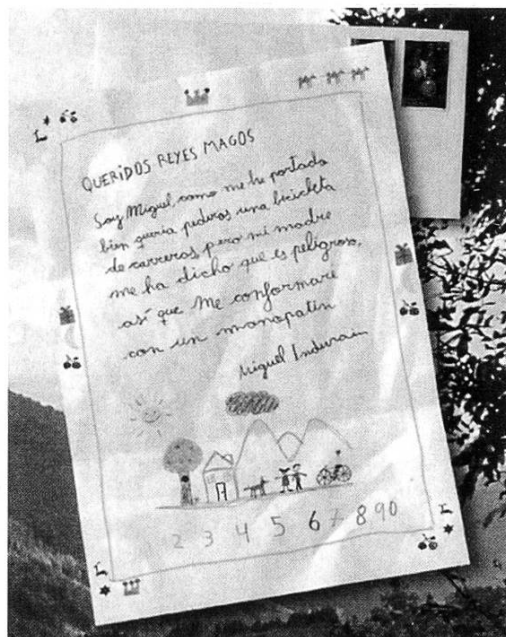 QUERIDOS REYES MAGOS
Soy Miguel, como me he portado
bien quería pediros una bicicleta
de carreras pero mi madre
me ha dicho que es peligroso,
así que me conformaré
con un monopatín
Miguel Indurain
2 3 4 5 6 7 8 9 0